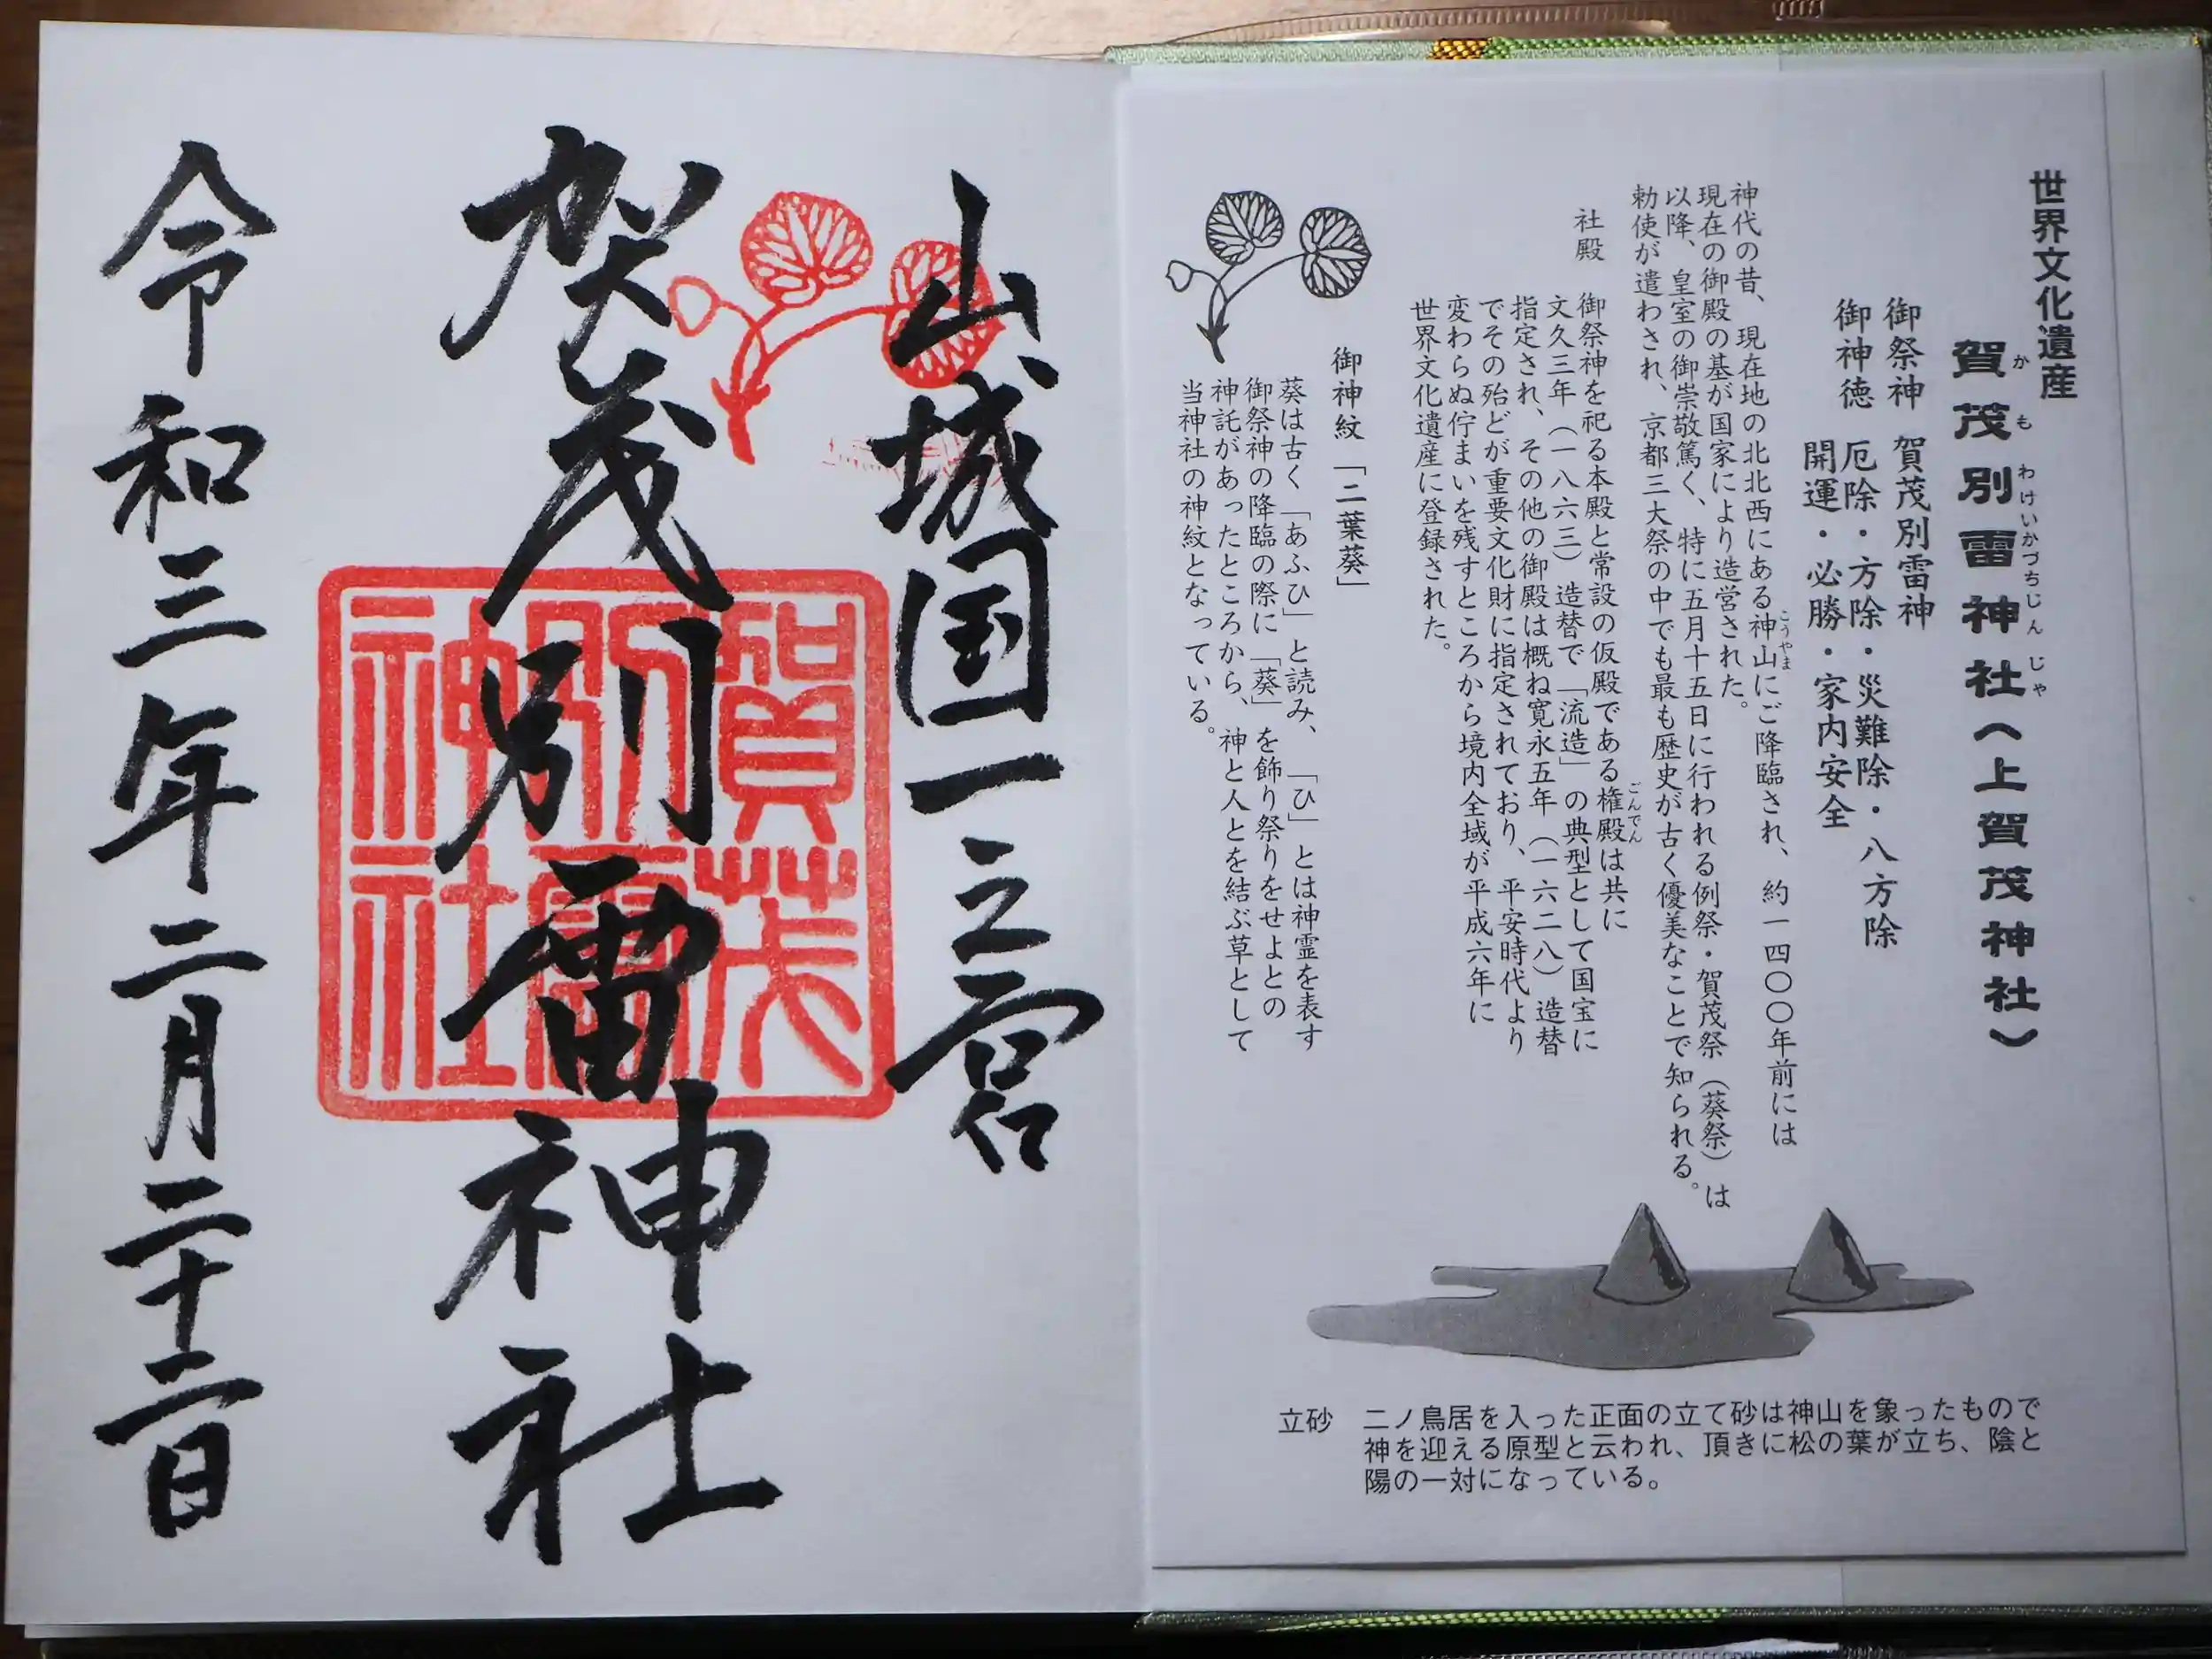 世界文化遺産
賀茂別雷神社（上賀茂神社）
かもわけいかづちじんじゃ
御祭神 賀茂別雷神
御神徳 厄除・方除・災難除・八方除
開運・必勝・家内安全
神代の昔、現在地の北北西にある神山にご降臨され、約一四〇〇年前には
こうやま
現在の御殿の基が国家により造営された。
以降、皇室の御崇敬篤く、特に五月十五日に行われる例祭・賀茂祭（葵祭）は
勅使が遣わされ、京都三大祭の中でも最も歴史が古く優美なことで知られる。
社殿 御祭神を祀る本殿と常設の仮殿である権殿は共に
ごんでん
文久三年（一八六三）造替で「流造」の典型として国宝に
指定され、その他の御殿は概ね寛永五年（一六二八）造替
でその殆どが重要文化財に指定されており、平安時代より
変わらぬ佇まいを残すところから境内全域が平成六年に
世界文化遺産に登録された。
御神紋「二葉葵」
葵は古く「あふひ」と読み、「ひ」とは神霊を表す
御祭神の降臨の際に「葵」を飾り祭りをせよとの
神託があったところから、神と人とを結ぶ草として
当神社の神紋となっている。
立砂 二ノ鳥居を入った正面の立て砂は神山を象ったもので
神を迎える原型と云われ、頂きに松の葉が立ち、陰と
陽の一対になっている。
山城国一之宮
賀茂別雷神社
令和三年二月二十二日
賀茂
別雷
神社